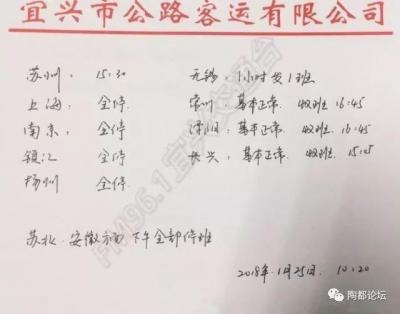 宜兴市公路客运有限公司
苏州: 15:30 无锡: 1小时发1班
上海: 全停 常州: 基本正常. 收班 16:45
南京: 全停 溧阳: 基本正常. 收班 16:45
镇江: 全停 长兴: 基本正常. 收班 15:05
扬州: 全停.
苏北.安徽方向下午全部停班
2018年.1月25日. 10:20
FM96.1宜兴交通台
陶都论坛